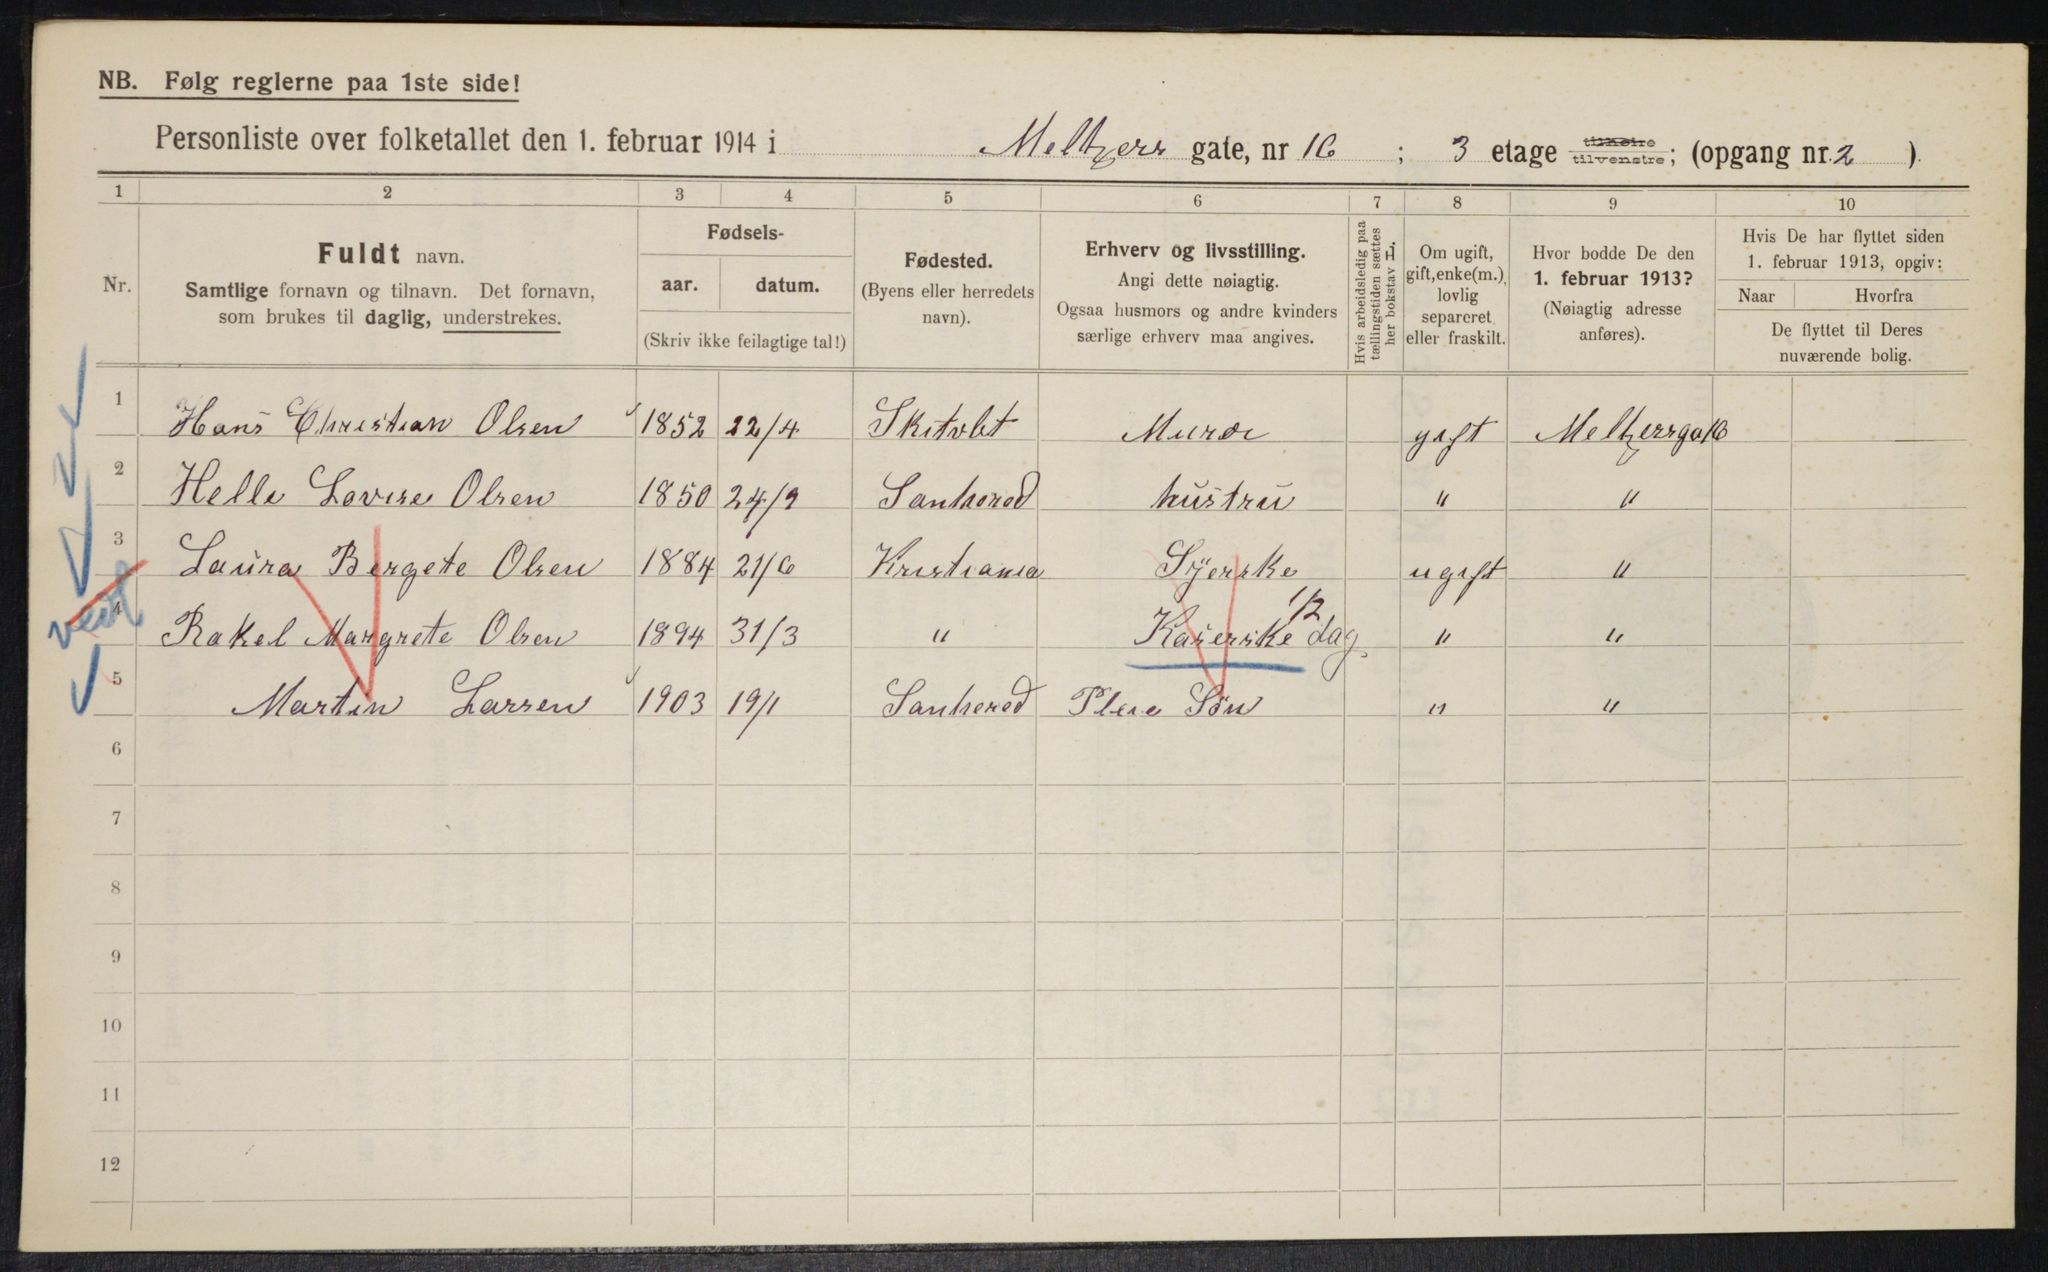 NB. Følg reglerne paa 1ste side!
Personliste over folketallet den 1. februar 1914 i Meltzers gate, nr 16 ; 3 etage tilhøire tilvenstre; (opgang nr. 2 ).
1 2 3 4 5 6 7 8 9 10
Nr.
Fuldt navn.
Samtlige fornavn og tilnavn. Det fornavn,
som brukes til daglig, understrekes.
Fødsels-
aar. datum.
(Skriv ikke feilagtige tal!)
Fødested.
(Byens eller herredets
navn).
Erhverv og livsstilling.
Angi dette nøiagtig.
Ogsaa husmors og andre kvinders
særlige erhverv maa angives.
Hvis arbeidsledig paa
tællingstiden sættes
her bokstav L.
Om ugift,
gift, enke(m.),
lovlig
separeret
eller fraskilt.
Hvor bodde De den
1. februar 1913?
(Nøiagtig adresse
anføres).
Hvis De har flyttet siden
1. februar 1913, opgiv:
Naar Hvorfra
De flyttet til Deres
nuværende bolig.
1 Hans Christian Olsen 1852 22/4 Skitvbt Murer gift Meltzersga 16
2 Helle Lovise Olsen 1850 24/9 Sanherod hustru " "
3 Laura Bergete Olsen 1884 21/6 Kristiania Syerske ugift "
4 Rakel Margrete Olsen 1894 31/3 " Kaserske 1/2 dag " "
5 Martin Larsen 1903 19/1 Sanherod Pleie Søn " "
6
7
8
9
10
11
12